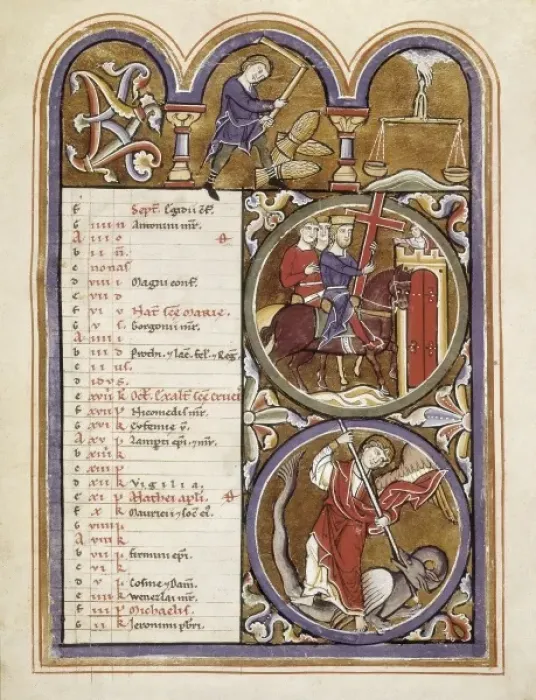 KL
f Sept. Egidii
G iiii n Antonini mr.
A iii o
b ii n.
c nonas
d viii i Magni conf.
e vii d
f vi v Nat. sce Marie.
G v s. Gorgonii mr.
A iiii i
b iii d Proth. ⁊ Iac.
c ii us.
d idvs.
e xviii k Oct. Exalt sce Crucis
f xvii p Nicomedis mr.
G xvi k Eufemie v.
A xv p Lamperti epi. ⁊ mr.
b xiiii k
c xiii p
d xii k Vigilia.
e xi p Mathei apli.
f x k Mauricii ⁊ soc ei.
G viiii p.
A viii k
b vii p firmini epi.
c vi k
d v p Cosme ⁊ Dam.
e iiii k Wenezlai mr.
f iii p Michaelis.
G ii k Jeronimi pbri.